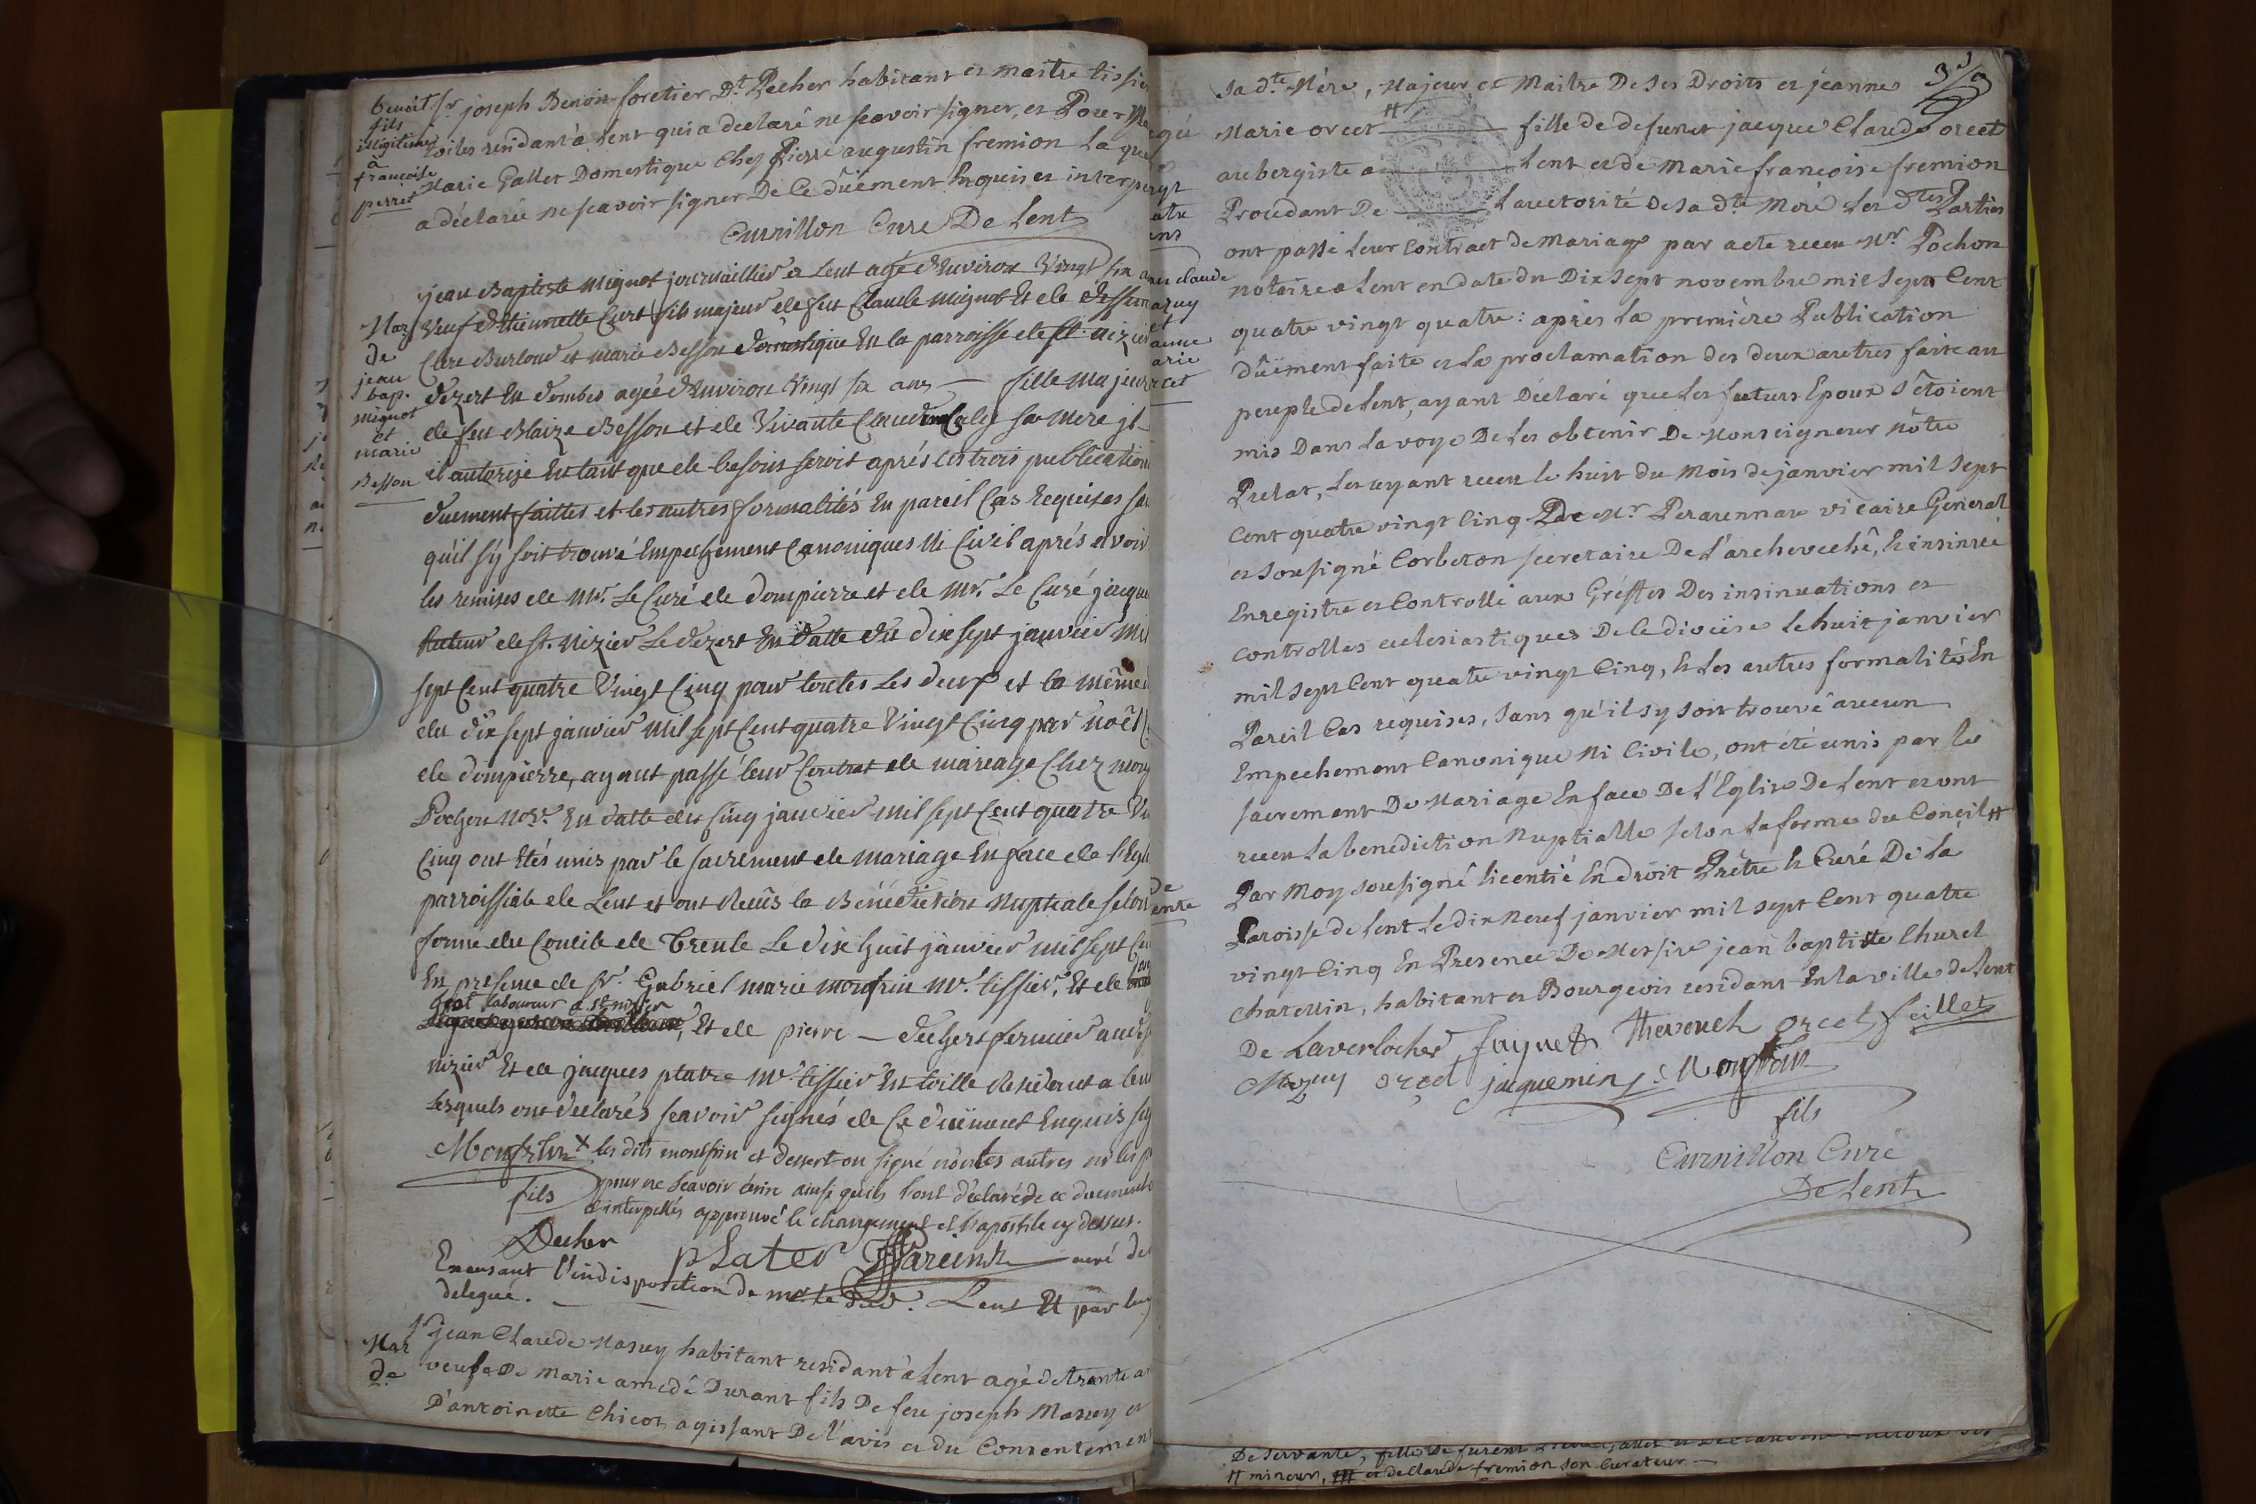 benoît
fils
illégitime
à
françoise
perret
Sr joseph Benoin foretier Dt. Pecher habitant et maitre tissier
toiles residant à Lent qui a declaré ne scavoir signer, et Pour
Marie Gallet Domestique chez Pierre augustin fremion La que
a déclarée ne scavoir signer De Ce dûement Enquis et interp
Curnillon Curé De Lent
Mar
de
jean
bap.
mignot
et
marie
Besson
jean Baptiste Mignot journaillier a Lent agé d'Environ Vingt six
Veuf d'Etiennette Curt fils majeur de feu Claude Mignot Et de deffun
Clere Burlond et marie Besson domestique En la parroisse de st. nizier
dezert En dombes ageé d'Environ Vingt six ans — fille majeur
de feu Blaize Besson et de Vivante Claudine Caly sa Mere
et autorisé En tant que de besoin seroit aprés les trois publication
duement faittes et les autres formalités En pareil Cas Requises sa
qu'il s'y soit trouvé Empechement Canoniques Ni Civil aprés avoir
les remises de Mr. Le Curé de dompierre et de Mr. Le Curé jacque
de st. Nizier Le dezert En datte du dix sept janvier Mil
sept Cent quatre Vingt Cinq pour toutes Les deux et la même
du dix sept janvier Mil sept Cent quatre Vingt Cinq par noël
de dompierre, ayant passé leur Contrat de mariage Chez
Pochon nore. En datte du Cinq janvier mil sept Cent quatre Vi
Cinq ont Etés unis par le sacrement de mariage En face de l'Egli
parroissiale de Lent et ont Reçûs la Bénédiction Nuptiale selon
forme du Concile de Trente Le dix huit janvier mil sept Cen
En presence de sr. Gabriel marie monfrin Mr. tissier, Et de
laboureur a st nizier
Et de pierre — dechert fermier
nizier Et de jacques platre Mr. tissier En toille Residents a Lent
Lesquels ont declarés scavoir signés de Ce duëment Enquis
Monfrin x les dits monfrin et dessert on signé non les autres
fils pour ne scavoir écrire ainsi quils l'ont déclaré de ce duement
interpellés approuvé le changement et l'apostile cy dessus.
Decher
plater Parcint curé de
En cusant l'indisposition de mr le curé. Lent Et par luy
delegué.
Mar
de
Sr jean Claude Maruy habitant residant à Lent agé de trente a
veuf de Marie amedé Durant fils De feu joseph Maruy et
D'antoinette Chicot agissant De l'avis et du Consentement
jean claude
maruy
et
jeanne
marie
orcet
3
Sa dte. Mére, Majeur et Maitre De Ses Droits et jeanne
Marie orcet # fille de defunct jacque Claude orcet
aubergiste a Lent et de Marie françoise fremion
Procedant De L'auctorité De sa dte Meré Les dtes Parties
ont passé Leur Contract de mariage par acte reçeu Mr. Pochon
notaire a Lent en date du Dix Sept novembre mil Sept Cent
quatre vingt quatre: aprés La premiére Publication
dûëment faite et La proclamation des deux autres faite au
peuple de Lent, ayant Déclaré que Les futurs Epoux s'étoient
mis Dans La voye De Les obtenir De Monseigneur Nôtre
Prelat, Les ayant reçeu le huit du Mois de janvier mil Sept
Cent quatre vingt Cinq. De Mr. Perarennau vicaire General
et Sousigné Corbeton secretaire De L'archeveché, & insinué
Enregistre et Controllé aux Gréffes Des insinuations et
controlles eclesiastiques De Ce diocése Le huit janvier
mil Sept Cent quatre vingt Cinq, & Les autres formalités En
Pareil Cas requises, Sans qu'il s'y soit trouvé aucun
Empechement Canonique Ni Civile, ont été unis par le
Sacrement De Mariage En face De L'Eglise De Lent et ont
reçeu La benediction Nuptialle selon La forme du Concile
Par Moy sousigné Licentié En droit Prêtre & Curé De La
Paroisse de Lent Le dix Neuf janvier mil sept Cent quatre
vingt Cinq En Presence De Messire jean baptiste Churel
Charellin, habitant et Bourgeois residant En la ville de Lent
De Laverlochere juynets Thevouet orcet feillet
Mazuy orcet jacquemin Monfrin
fils
Curnillon Curé
De Lent
De Servante, fille De
# mineur, et de Claude fremion son Curateur —